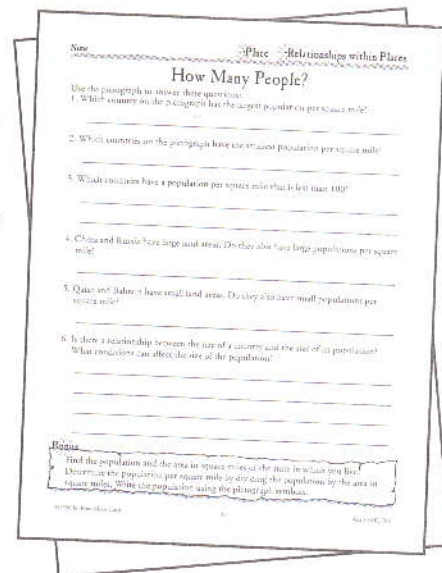 Name
Place Relationships within Places
How Many People?
Use the pictograph to answer these questions:
1. Which country on the pictograph has the largest population per square mile?
2. Which countries on the pictograph have the smallest population per square mile?
3. Which countries have a population per square mile that is less than 100?
4. China and Russia have large land areas. Do they also have large populations per square
mile?
5. Qatar and Bahrain have small land areas. Do they also have small populations per
square mile?
6. Is there a relationship between the size of a country and the size of its population?
What conditions can affect the size of the population?
Bonus
Find the population and the area in square miles of the state in which you live.
Determine the population per square mile by dividing the population by the area in
square miles. Write the population using the pictograph symbols.